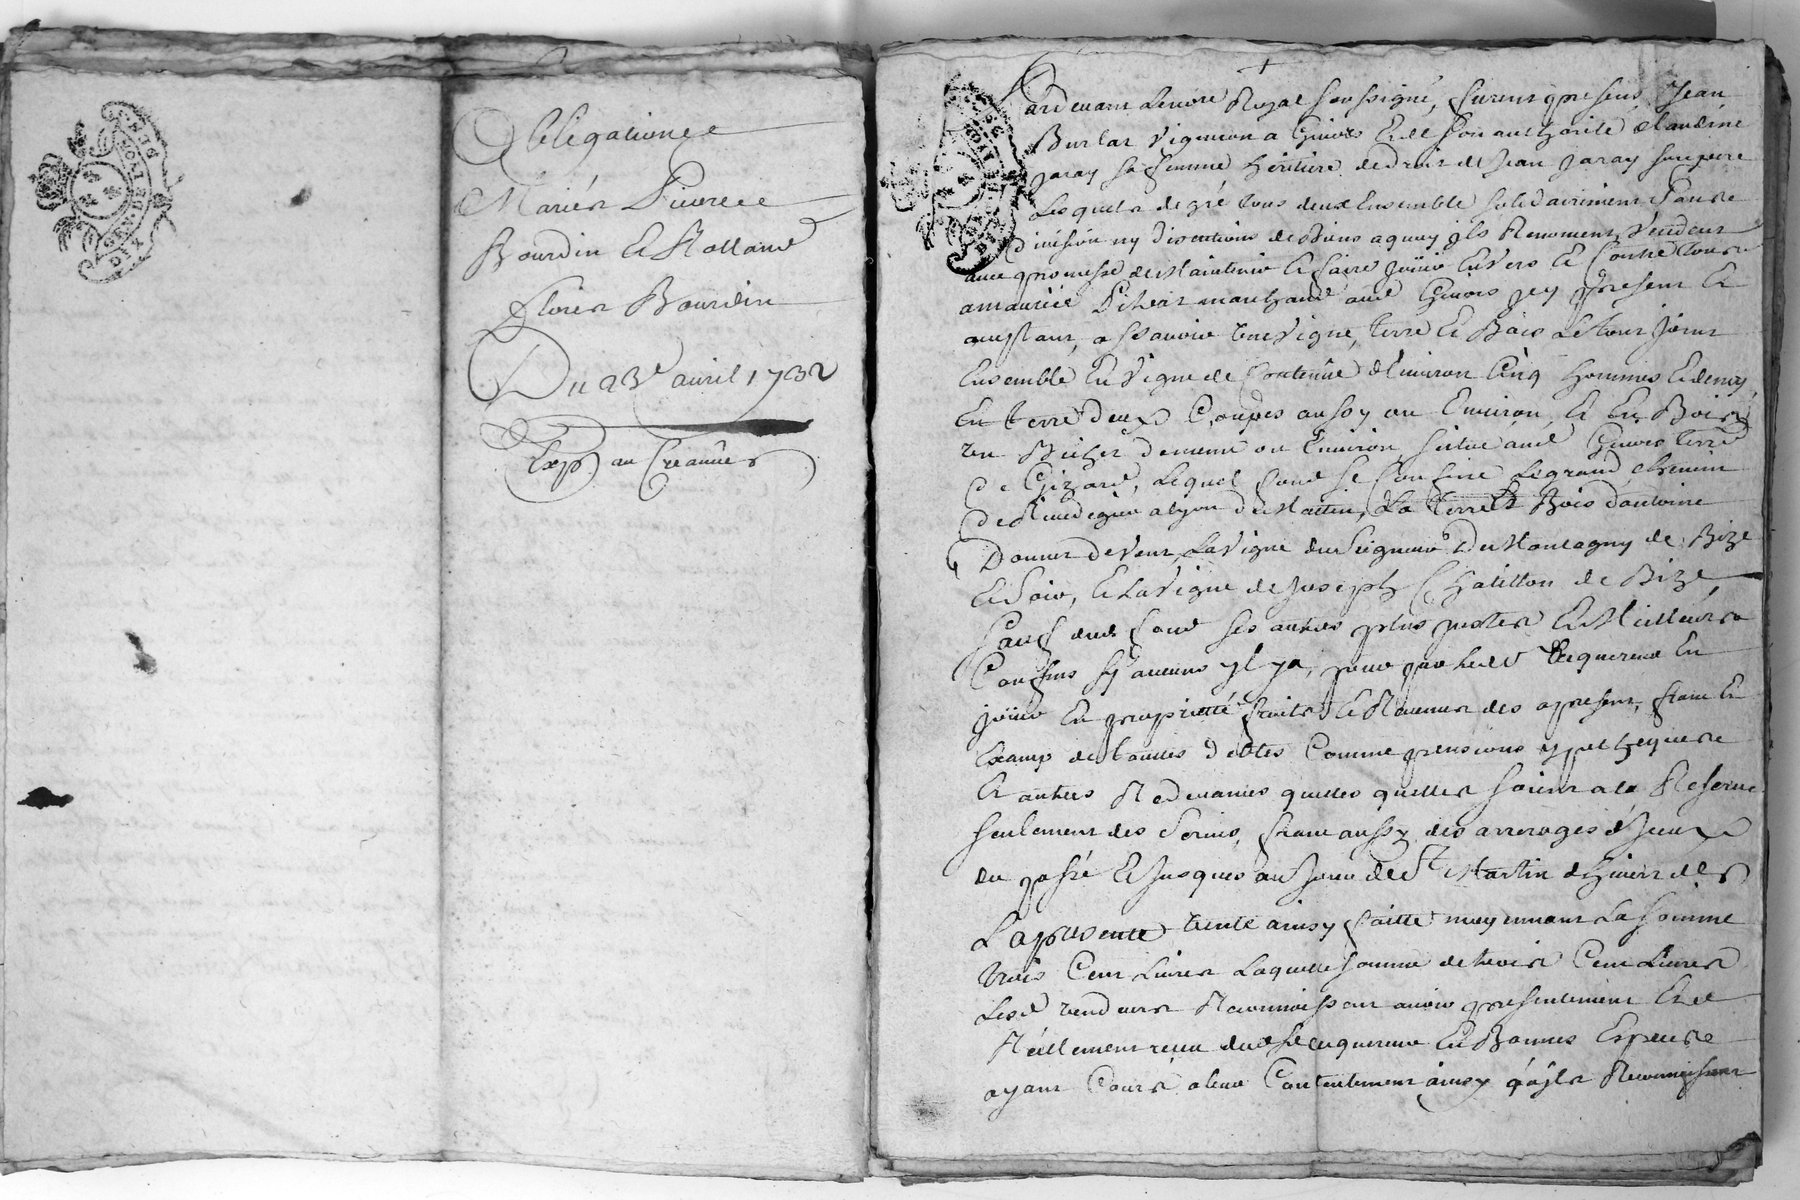 GEN. DE LYON
DIX
Obligation
Mariés Pierre
Bourdin et Rolland
Bourdin
Du 23e avril 1732
Exp au Creancier
+
Pardevant Lenore Royal soussigné, furent presens Jean
Burlat vigneron a Givors et de son authorité claudine
jaray sa femme heritiere de droit de Jean jaray son pere
Lesquels de gré tous deux Ensemble solidairement sans
division ny discution de biens a quoy ils Renoncent, vendent
avec promesse de Maintenir et faire jouir Envers et Contre tous
a marchand aud Givors jcy present et
acceptant, a scavoir une vigne, terre et Bois Le tout joint
Ensemble En vigne de Contenue d'Environ Cinq hommes et demy
En terre deux Coupes ou Environ et En Bois
un Bichet demeni ou Environ situé aud Givors terre
de Gizard, Lequel fond se Confine Le grand chemin
de a Lyon du Matin, La terre et Bois d'antoine
Donnet de vent, La Vigne du Seigneur De Montagny de Bize
et soir, et La Vigne de Joseph Chatillon de Bize
Sauf dud fond ses autres plus justes et Meilleurs
Confins sy aucuns yl ya, pour par led acquereur En
jouir En proprietté fruits et Revenus des apresent, franc et
Exampt de toutes debtes Comme pensions ypotheques
Et autres Redevances quelles quelles soient a la Reserve
seulement des servis, franc aussy des arrerages d'jceux
du passé et Jusques au Jour de St Martin d'hiver der
La presente vente ainsy faitte moyennant La somme
trois Cent Livres Laquelle somme de trois Cent Livres
Lesd vendeurs Reconnoissent avoir presentement Et
Réellement receu dud sr acquereur En Bonnes Especes
ayant Cours a leur Contentement ainsy qu'ajls Reconnoissent